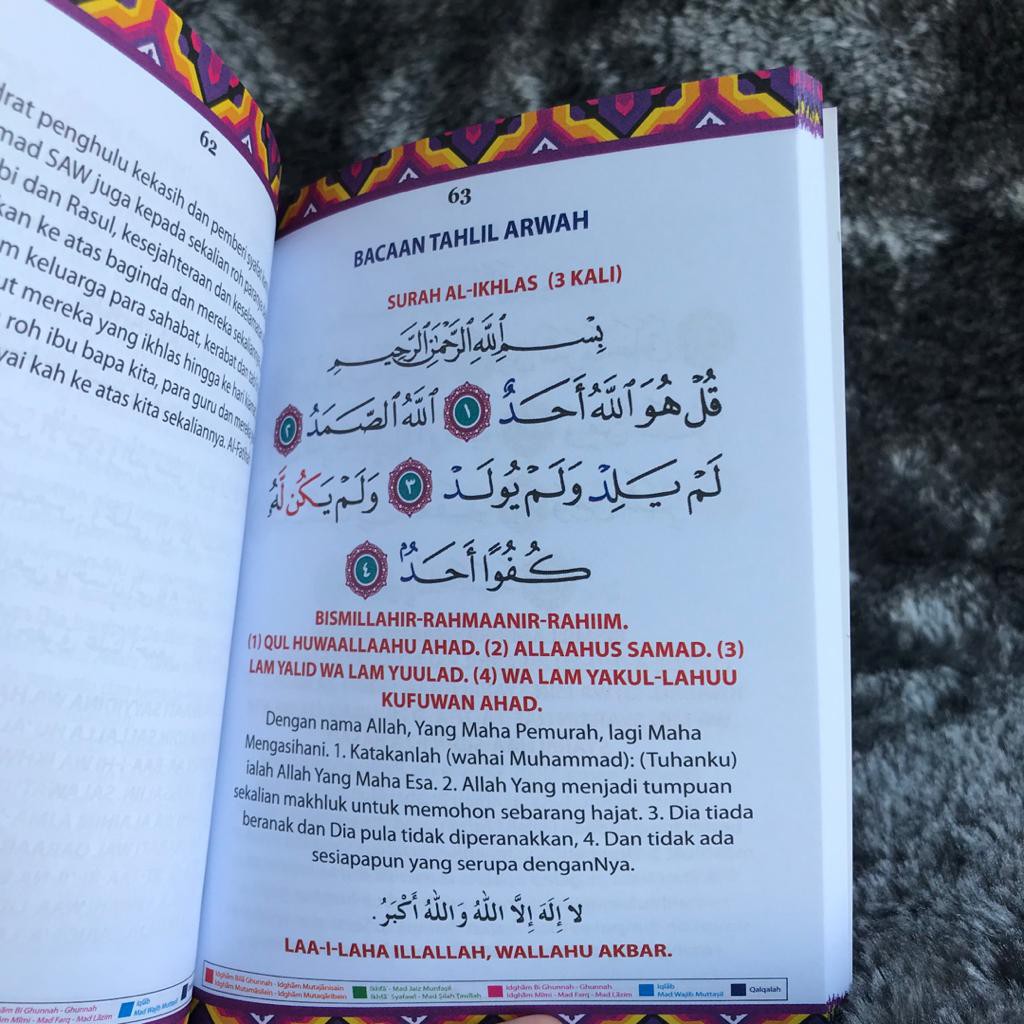 62
drat penghulu kekasih dan pemberi syafaat
mad SAW juga kepada sekalian roh
bi dan Rasul, kesejahteraan dan keselamatan
kan ke atas baginda dan mereka sekaliannya
m keluarga para sahabat, kerabat dan
ut mereka yang ikhlas hingga ke hari kiamat
roh ibu bapa kita, para guru dan mereka
ai kah ke atas kita sekaliannya. Al-Fatihah
63
BACAAN TAHLIL ARWAH
SURAH AL-IKHLAS (3 KALI)
بِسْمِ اللَّهِ الرَّحْمَٰنِ الرَّحِيمِ
قُلْ هُوَ اللَّهُ أَحَدٌ ١ اللَّهُ الصَّمَدُ ٢
لَمْ يَلِدْ وَلَمْ يُولَدْ ٣ وَلَمْ يَكُن لَّهُ
كُفُوًا أَحَدٌ ٤
BISMILLAHIR-RAHMAANIR-RAHIIM.
(1) QUL HUWAALLAAHU AHAD. (2) ALLAAHUS SAMAD. (3)
LAM YALID WA LAM YUULAD. (4) WA LAM YAKUL-LAHUU
KUFUWAN AHAD.
Dengan nama Allah, Yang Maha Pemurah, lagi Maha
Mengasihani. 1. Katakanlah (wahai Muhammad): (Tuhanku)
ialah Allah Yang Maha Esa. 2. Allah Yang menjadi tumpuan
sekalian makhluk untuk memohon sebarang hajat. 3. Dia tiada
beranak dan Dia pula tidak diperanakkan, 4. Dan tidak ada
sesiapapun yang serupa denganNya.
لاَ إِلَهَ إِلَّا اللهُ وَاللهُ أَكْبَرُ.
LAA-I-LAHA ILLALLAH, WALLAHU AKBAR.
Idghâm Bilâ Ghunnah - Idghâm Mutajânisain Ikhfâ' - Mad Jaiz Munfaşil Idghâm Bi Ghunnah - Ghunnah Iqlâb Qalqalah
Idghâm Mutamâsilain - Idghâm Mutaqâribain Ikhfâ' Syafawî - Mad Şilah Ţawîlah Idghâm Mîmî - Mad Farq - Mad Lâzim Mad Wajib Muttaşil
hâm Bi Ghunnah - Ghunnah Iqlâb
hâm Mîmî - Mad Farq - Mad Lâzim Mad Wajib Muttaşil